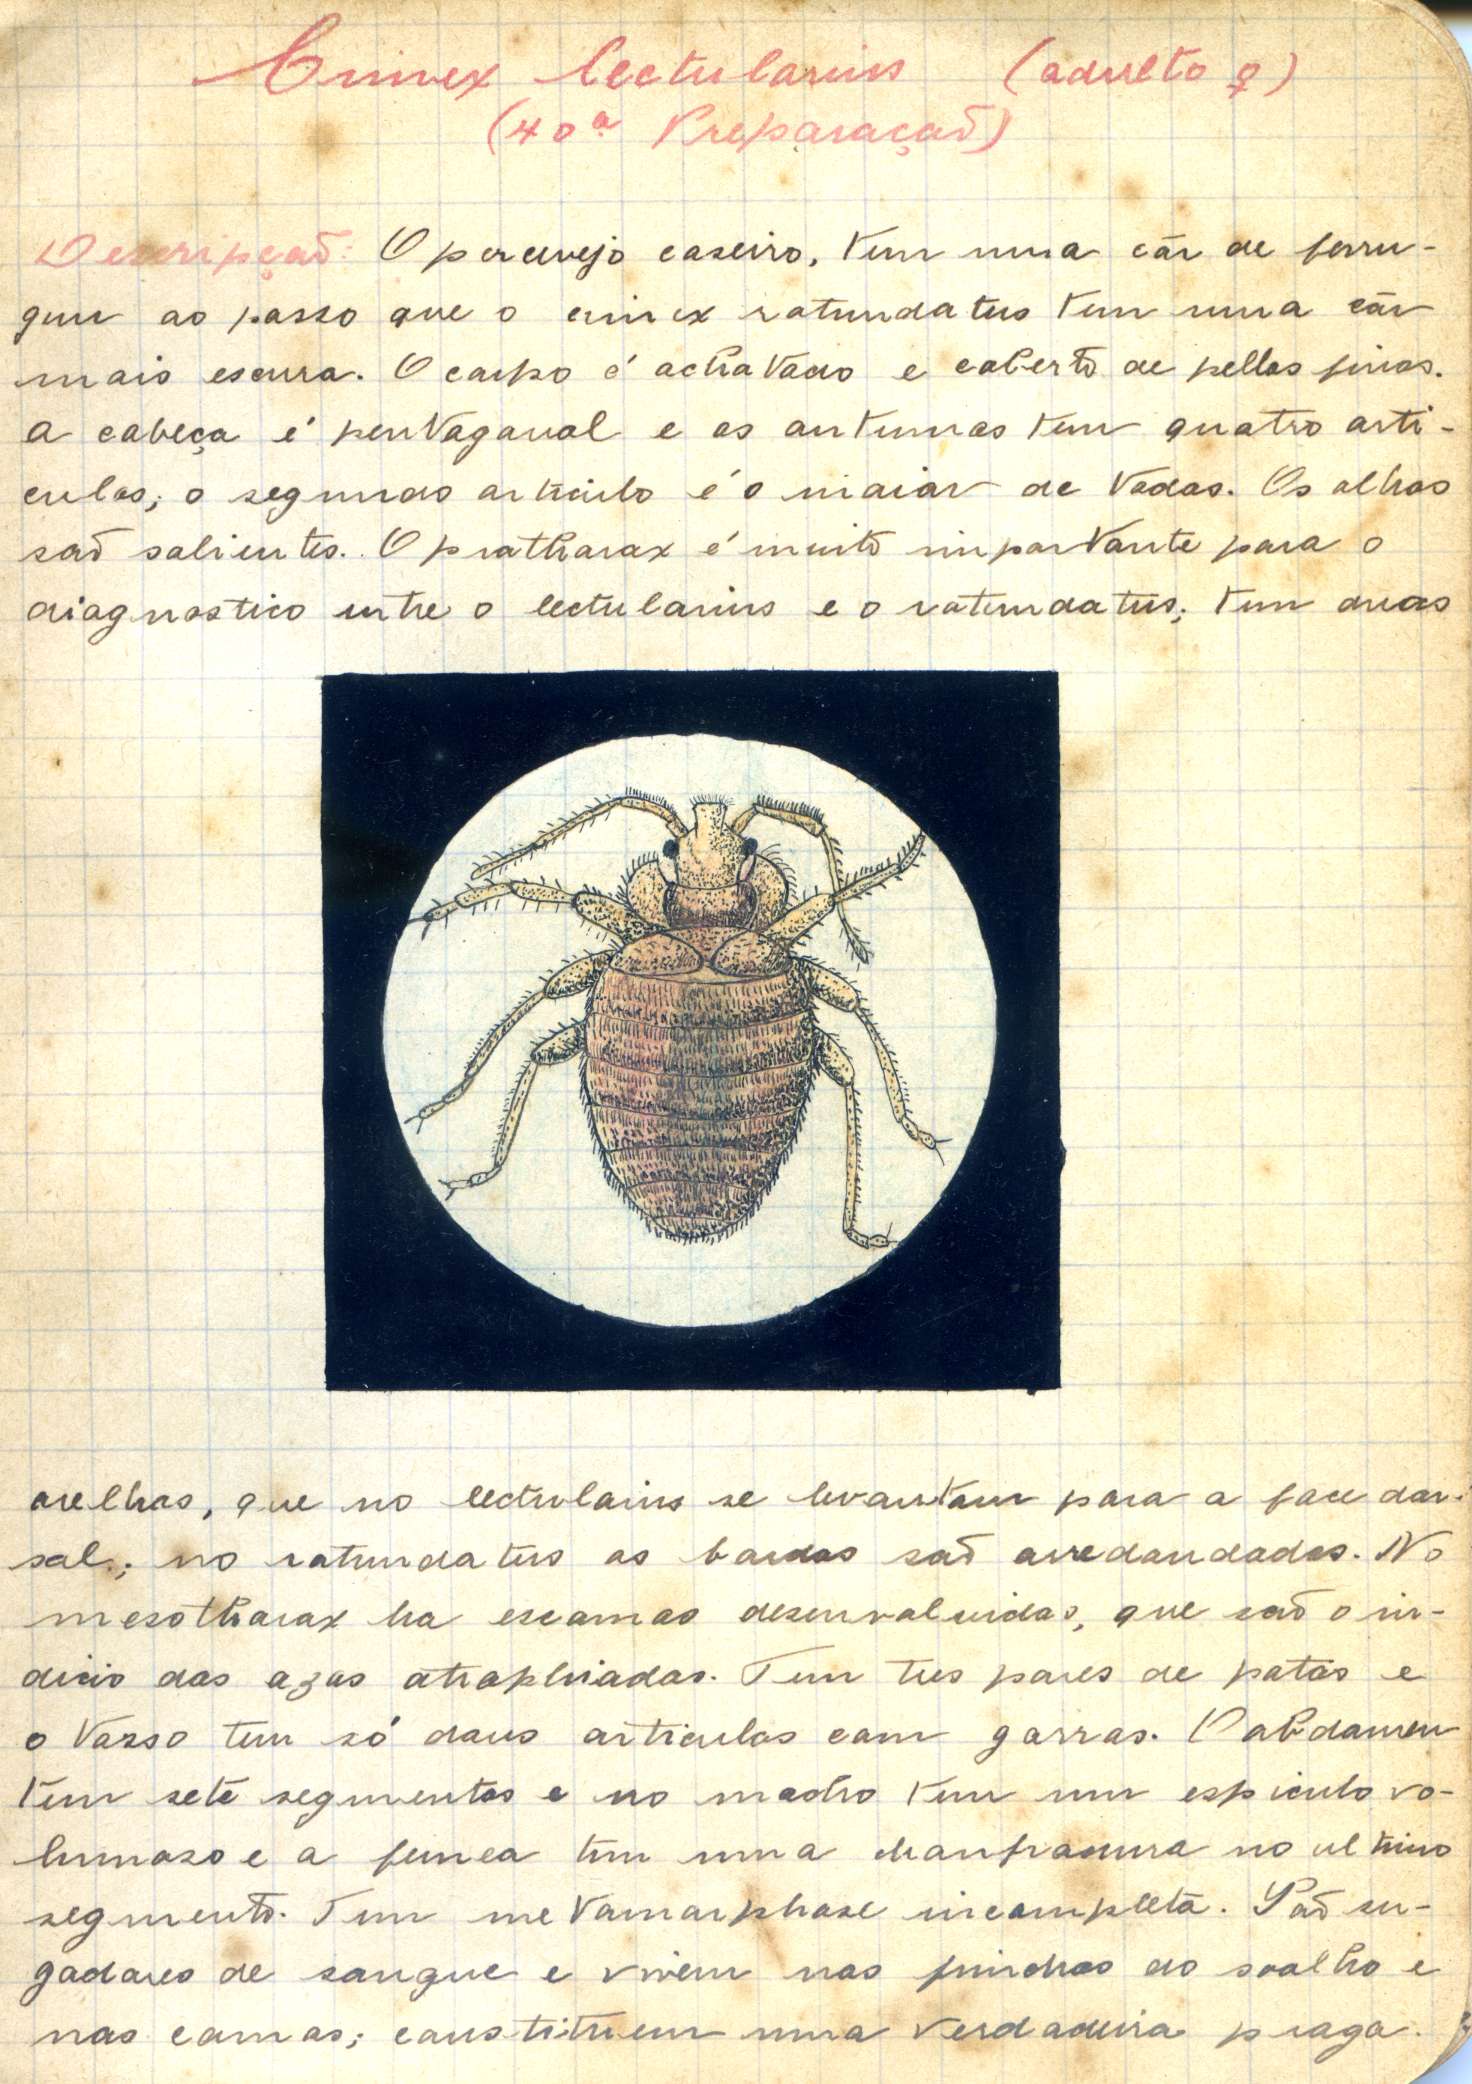 Cimex lectularius (adulto ♀)
(40ª Preparação)
Descripção: O percevejo caseiro, tem uma côr de ferru-
gem ao passo que o cimex rotundatus tem uma côr
mais escura. O corpo é achatado e coberto de pellos finos.
A cabeça é pentagonal e as antennas tem quatro arti-
culos; o segundo articulo é o maior de todos. Os olhos
são salientes. O prothorax é muito importante para o
diagnostico entre o lectularius e o rotundatus; tem duas
orelhas, que no lectularius se levantam para a face dor-
sal; no rotundatus os bordos são arredondados. No
mesothorax ha escamas desenvolvidas, que são o in-
dicio das azas atrophiadas. Tem tres pares de patas e
o tarso tem só dous articulos com garras. O abdomen
tem sete segmentos e no macho tem um espiculo vo-
lumoso e a femea tem uma chanfradura no ultimo
segmento. Tem metamorphose incompleta. São su-
gadores de sangue e vivem nas frinchas do soalho e
nas camas; constituem uma verdadeira praga.